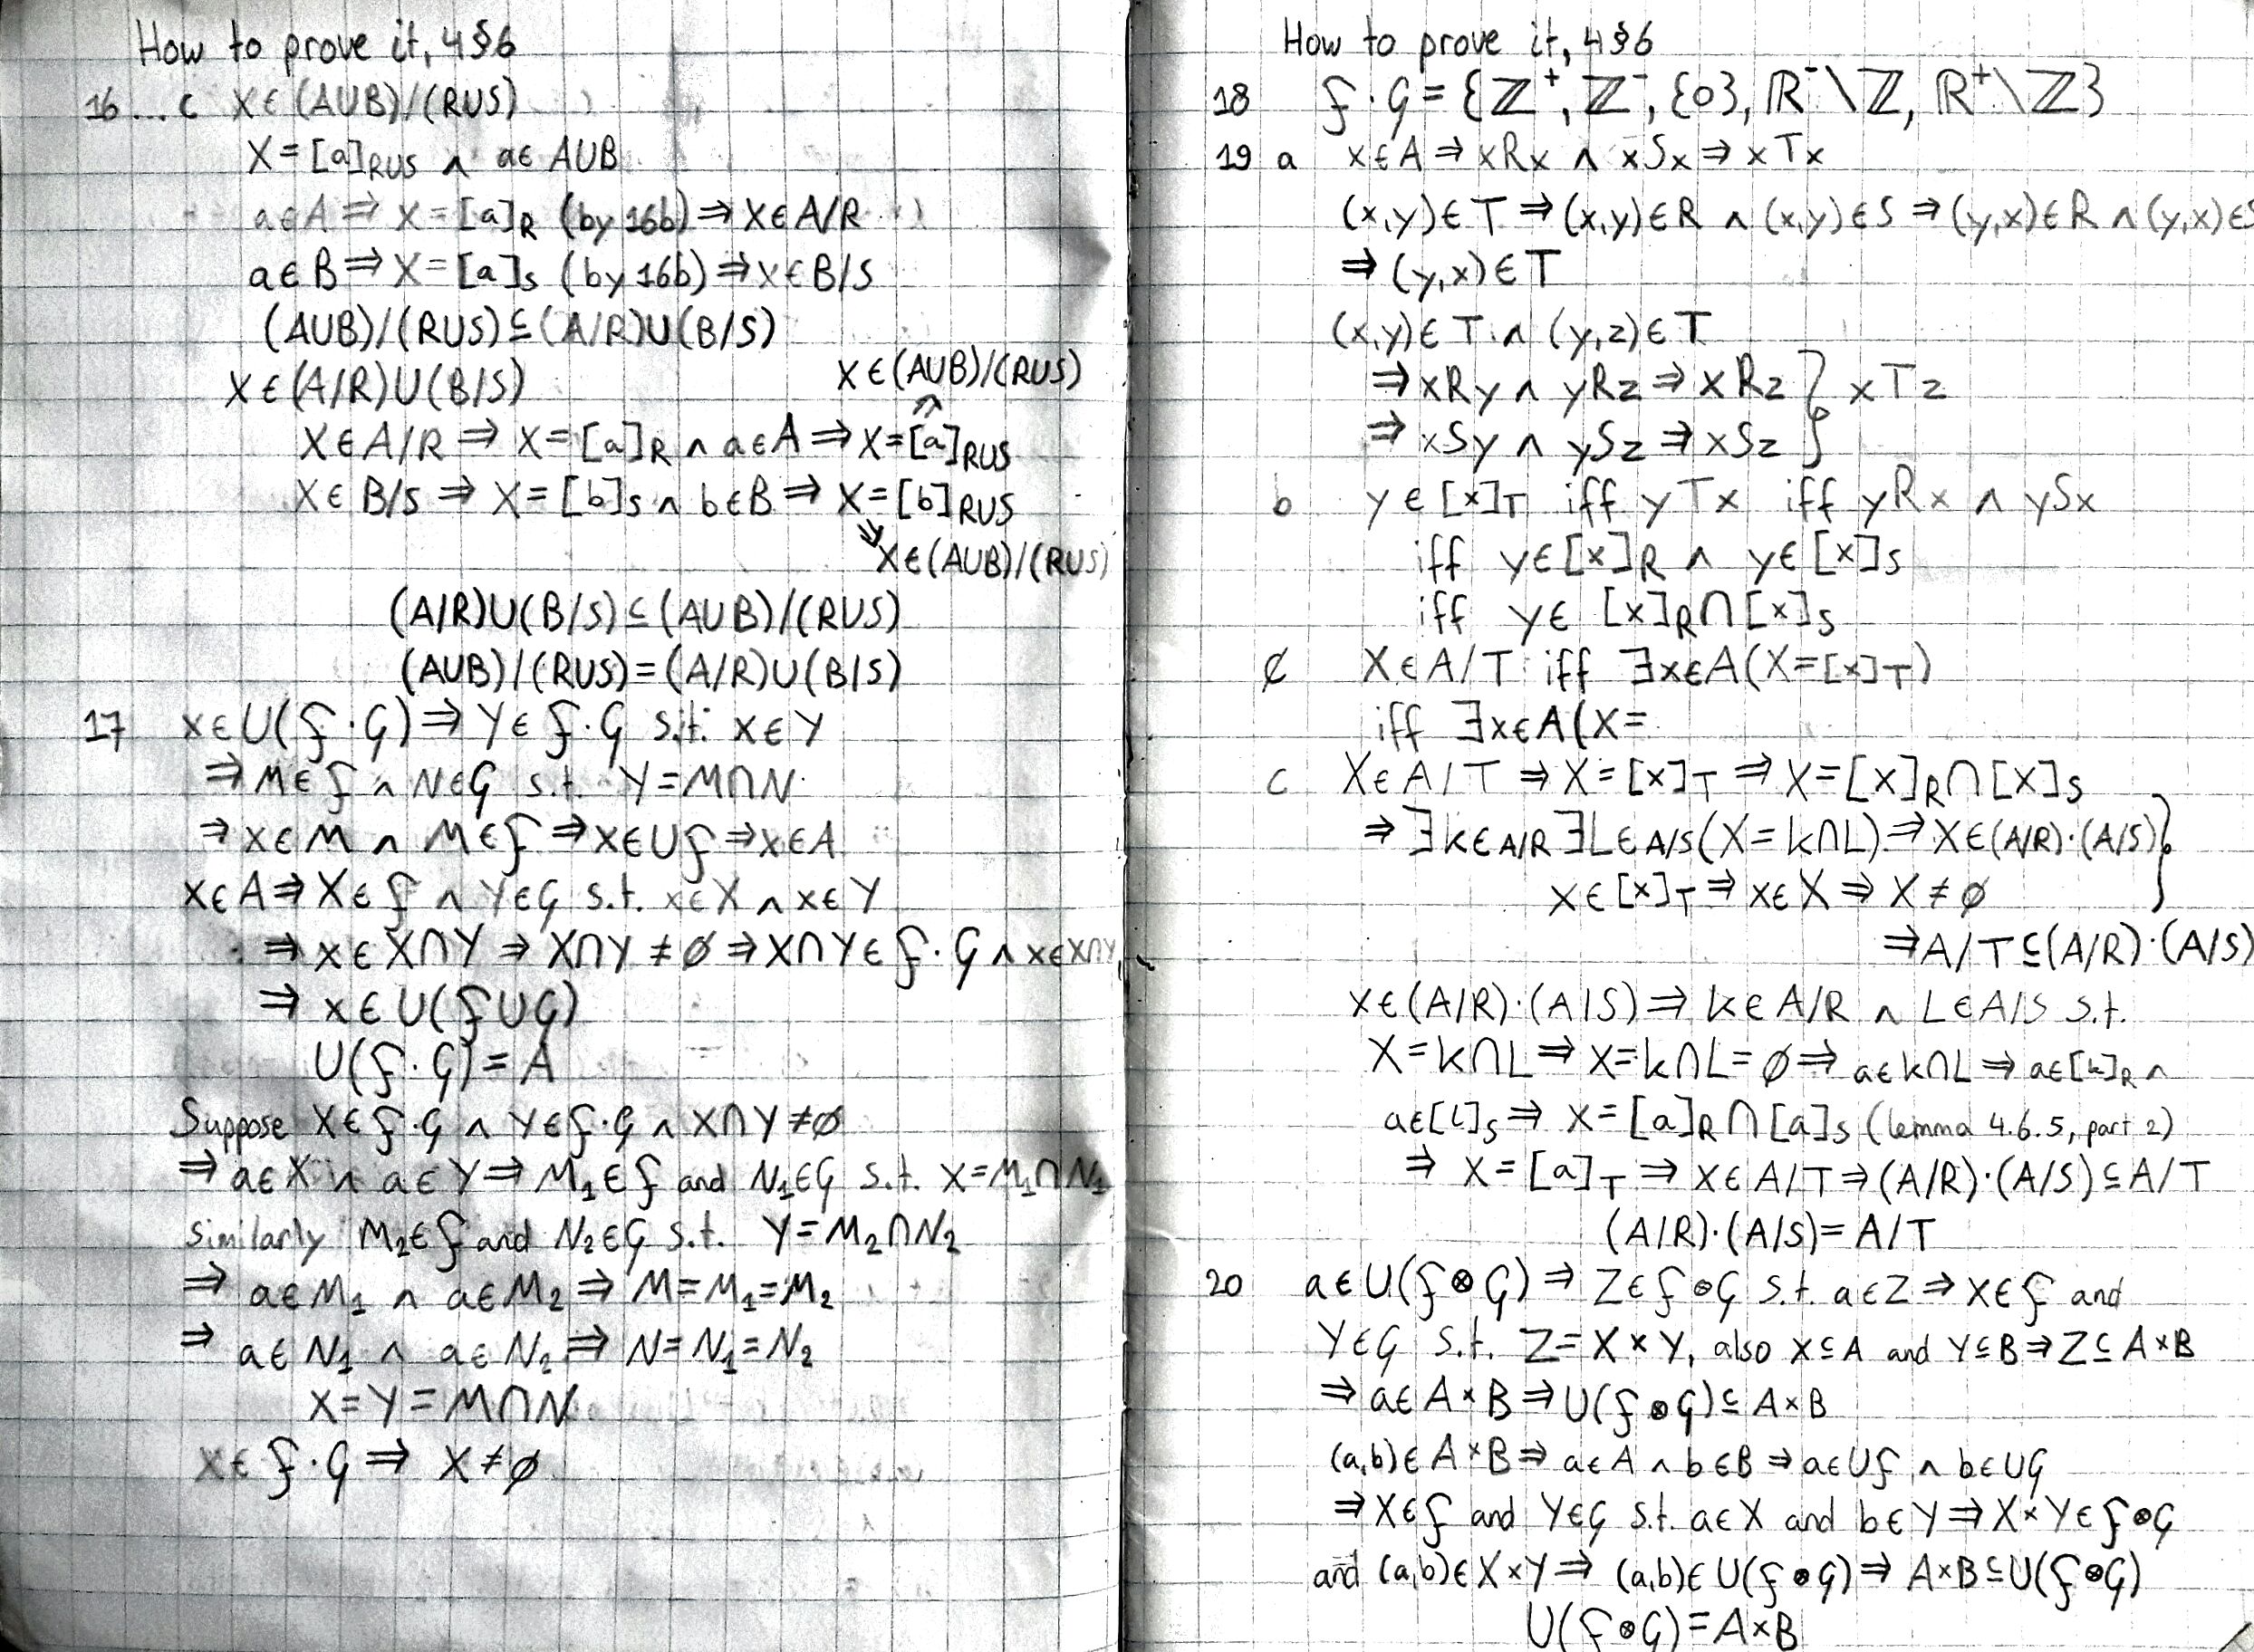 How to prove it, 4§6
16...c X∈(A∪B)/(R∪S)
X=[a]R∪S ∧ a∈A∪B
a∈A⇒X=[a]R (by 16b)⇒X∈A/R
a∈B⇒X=[a]S (by 16b)⇒X∈B/S
(A∪B)/(R∪S)⊆(A/R)∪(B/S)
X∈(A/R)∪(B/S)
X∈(A∪B)/(R∪S)
⇑
X∈A/R⇒X=[a]R ∧ a∈A⇒X=[a]R∪S
X∈B/S⇒X=[b]S ∧ b∈B⇒X=[b]R∪S
⇓
X∈(A∪B)/(R∪S)
(A/R)∪(B/S)⊆(A∪B)/(R∪S)
(A∪B)/(R∪S)=(A/R)∪(B/S)
17 x∈∪(F·G)⇒Y∈F·G s.t. x∈Y
⇒M∈F ∧ N∈G s.t. Y=M∩N
⇒x∈M ∧ M∈F⇒x∈∪F⇒x∈A
x∈A⇒X∈F ∧ Y∈G s.t. x∈X ∧ x∈Y
⇒x∈X∩Y⇒X∩Y≠∅⇒X∩Y∈F·G ∧ x∈X∩Y
⇒x∈∪(F∪G)
∪(F·G)=A
Suppose X∈F·G ∧ Y∈F·G ∧ X∩Y≠∅
⇒a∈X ∧ a∈Y⇒M1∈F and N1∈G s.t. X=M1∩N1
similarly M2∈F and N2∈G s.t. Y=M2∩N2
⇒a∈M1 ∧ a∈M2⇒M=M1=M2
⇒a∈N1 ∧ a∈N2⇒N=N1=N2
X=Y=M∩N
X∈F·G⇒X≠∅
How to prove it, 4§6
18 F·G={ℤ⁺,ℤ⁻,{0},ℝ⁻\ℤ,ℝ⁺\ℤ}
19 a x∈A⇒xRx ∧ xSx⇒xTx
(x,y)∈T⇒(x,y)∈R ∧ (x,y)∈S⇒(y,x)∈R ∧ (y,x)∈S
⇒(y,x)∈T
(x,y)∈T ∧ (y,z)∈T
⇒xRy ∧ yRz⇒xRz } xTz
⇒xSy ∧ ySz⇒xSz
b y∈[x]T iff yTx iff yRx ∧ ySx
iff y∈[x]R ∧ y∈[x]S
iff y∈[x]R∩[x]S
c X∈A/T iff ∃x∈A(X=[x]T)
iff ∃x∈A(X=
c X∈A/T⇒X=[x]T⇒X=[x]R∩[x]S
⇒∃K∈A/R ∃L∈A/S(X=K∩L)⇒X∈(A/R)·(A/S) }
x∈[x]T⇒x∈X⇒X≠∅
⇒A/T⊆(A/R)·(A/S)
X∈(A/R)·(A/S)⇒K∈A/R ∧ L∈A/S s.t.
X=K∩L⇒X=K∩L=∅⇒a∈K∩L⇒a∈[k]R ∧
a∈[l]S⇒X=[a]R∩[a]S (lemma 4.6.5, part 2)
⇒X=[a]T⇒X∈A/T⇒(A/R)·(A/S)⊆A/T
(A/R)·(A/S)=A/T
20 a∈∪(F⊗G)⇒Z∈F⊗G s.t. a∈Z⇒X∈F and
Y∈G s.t. Z=X×Y, also X⊆A and Y⊆B⇒Z⊆A×B
⇒a∈A×B⇒∪(F⊗G)⊆A×B
(a,b)∈A×B⇒a∈A ∧ b∈B⇒a∈∪F ∧ b∈∪G
⇒X∈F and Y∈G s.t. a∈X and b∈Y⇒X×Y∈F⊗G
and (a,b)∈X×Y⇒(a,b)∈∪(F⊗G)⇒A×B⊆∪(F⊗G)
∪(F⊗G)=A×B